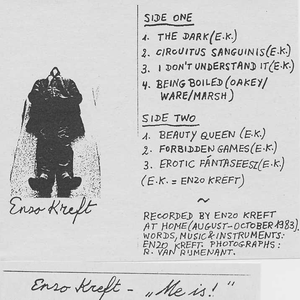 SIDE ONE
1. THE DARK (E.K.)
2. CIRCUITUS SANGUINIS (E.K.)
3. I DON'T UNDERSTAND IT (E.K.)
4. BEING BOILED (OAKEY/
WARE/MARSH)
SIDE TWO
1. BEAUTY QUEEN (E.K.)
2. FORBIDDEN GAMES (E.K.)
3. EROTIC FANTASEESZ (E.K.)
(E.K. = ENZO KREFT)
~
Enzo Kreft
RECORDED BY ENZO KREFT
AT HOME (AUGUST-OCTOBER 1983).
WORDS, MUSIC & INSTRUMENTS:
ENZO KREFT. PHOTOGRAPHS:
R. VAN RIJMENANT.
Enzo Kreft - „Me is!"